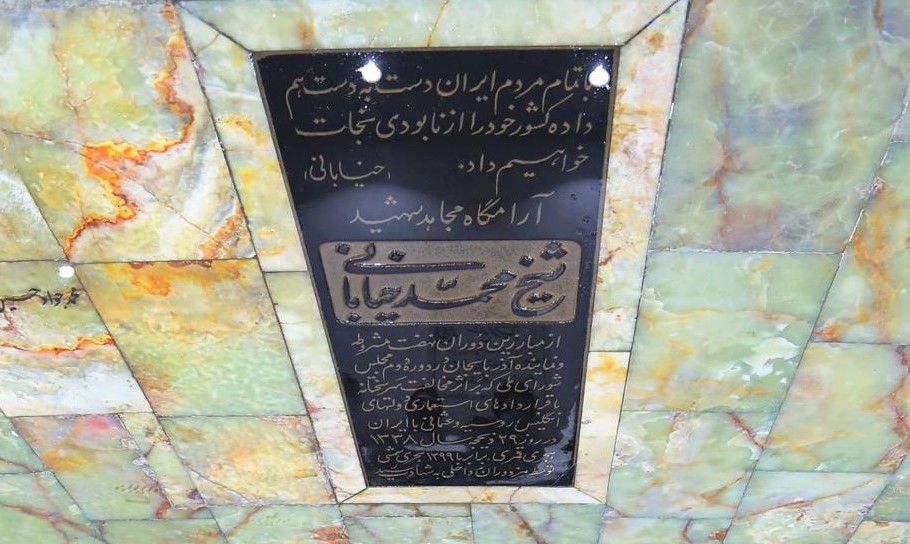 با تمام مردم ایران دست به دست هم
داده کشور خود را از نابودی نجات
خواهیم داد. (خیابانی)
آرامگاه مجاهد شهید
شیخ محمد خیابانی
از مبارزین دوران نهضت مشروطه
و نماینده آذربایجان در دوره دوم مجلس
شورای ملی که بر اثر مخالفت سرسختانه
با قراردادهای استعماری دولتهای
انگلیس روسیه و عثمانی با ایران
در روز ۲۹ ذیحجه سال ۱۳۳۸
هجری قمری برابر با ۱۲۹۹ هجری شمسی
توسط مزدوران داخلی به شهادت رسید
محمد جواد حسین